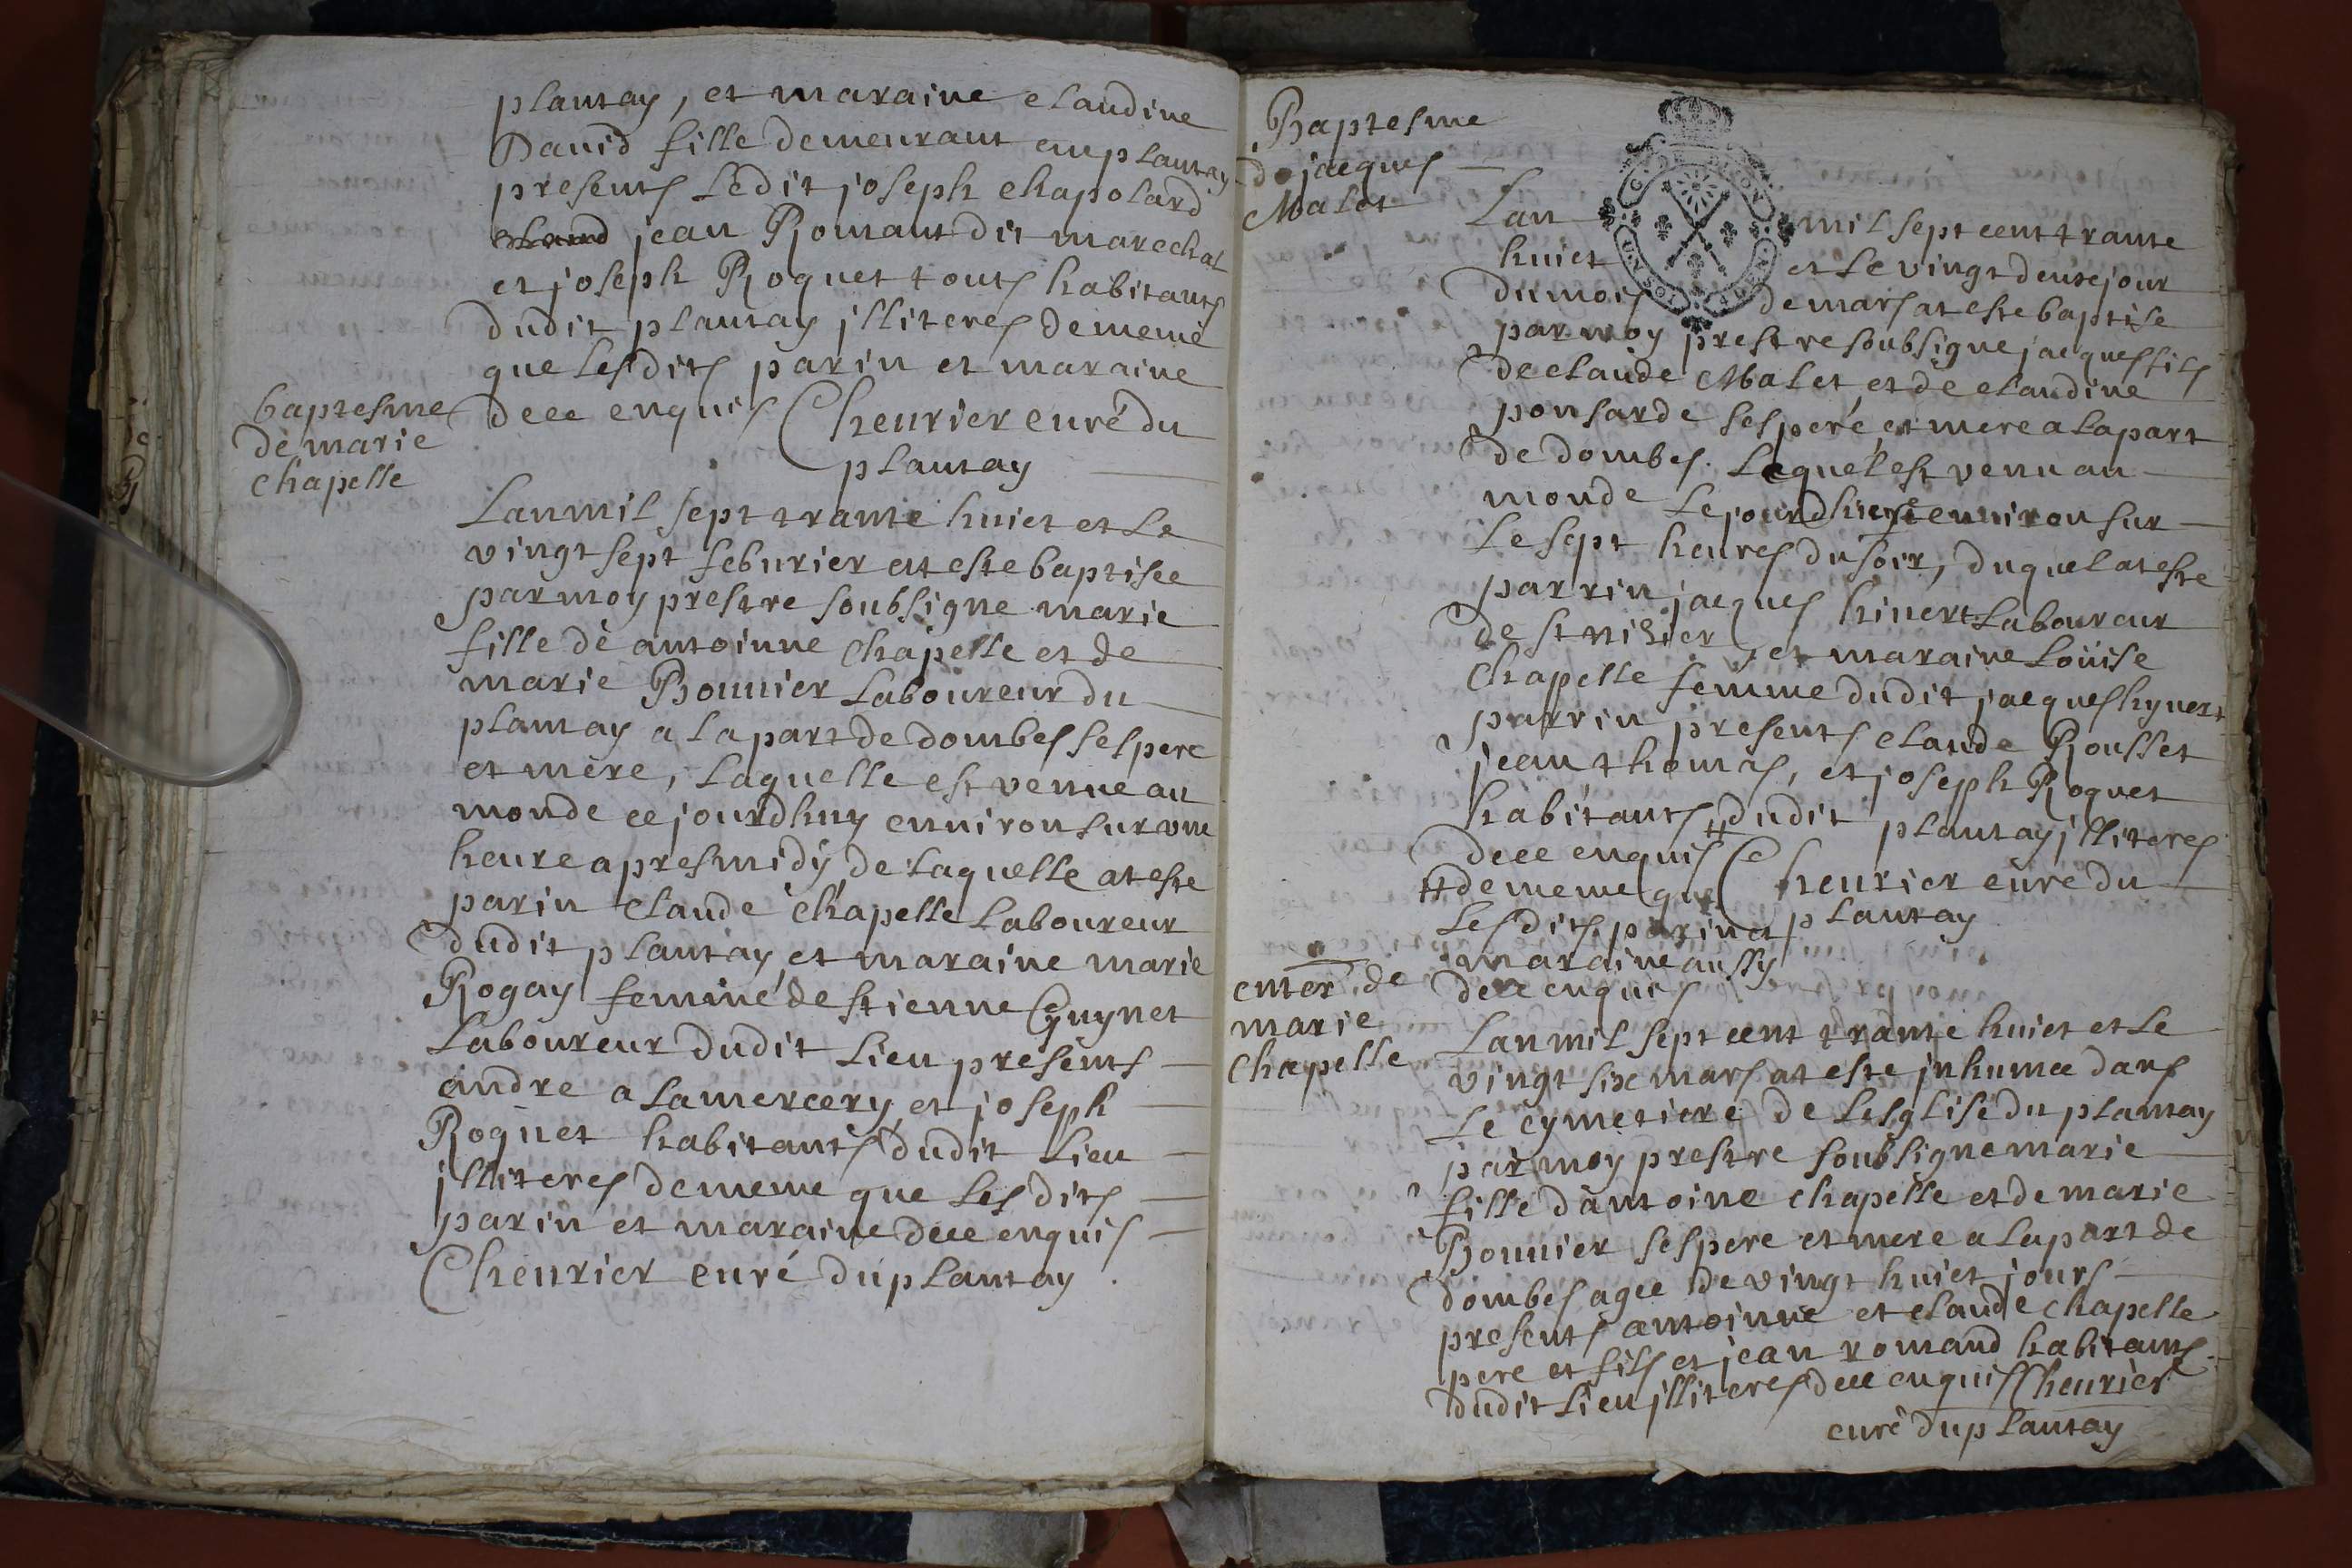 plantay, et maraine claudine
David fille demeurant au plantay
presents ledit joseph chapolard
jean Romant dit marechal
et joseph Roquet touts habitants
dudit plantay jlliteres de meme
que lesdits parin et maraine
dece enquis Cheurier curé du
plantay
baptesme
de marie
chapelle
Lanmil sept trante huict et le
vingt sept feburier at este baptisee
par moy prestre soubsigne marie
fille de antoinne chapelle et de
marie Bonnier Laboureur du
plantay a la part de dombes ses pere
et mere, laquelle est venue au
monde ce jourdhuy environ sur vne
heure apres midy de laquelle at este
parin claude chapelle Laboureur
dudit plantay, et maraine marie
Rogay femme de stienne Guynet
Laboureur dudit lieu presents
andre alamercery, et joseph
Roquet habitants dudit lieu
jlliteres de meme que lesdits
parin et maraine dece enquis
Cheurier curé du plantay.
Baptesme
de jacques
Malet
Lan mil sept cent trante
huict et le vingt deuse jour
du mois de mars at este baptise
par moy prestre soubsigne jacques fils
de claude Malet, et de claudine
ponsarde ses pere, et mere a la part
de dombes. Lequel est venu au
monde le jourdhier environ sur
le sept heures du soir, duquel at este
parrin jacques hinert Laboureur
de st nisier, et maraine Loüise
chapelle femme dudit jacques hynert
parrin presents claude Rousset
jean thomas, et joseph Roquet
habitants dudit plantay jlliteres
dece enquis Cheurier curé du
plantay
# de meme que
lesdits parin et
maraine aussy
dece enquis
enter. de
marie
chapelle
Lanmil sept cent trante huict et le
vingt six mars at este jnhumee dans
le cymetiere de lesglise du plantay
par moy prestre soubsigne marie
fille dantoine chapelle et de marie
Bonnier ses pere et mere a la part de
dombes agee de vingt huict jours
presents antoinne et claude chapelle
pere et fils et jean romand habitants
dudit lieu jlliteres dece enquis Cheurier
curé du plantay